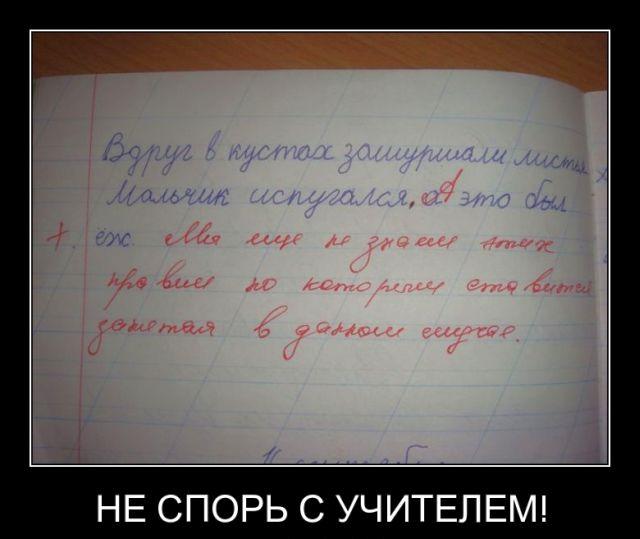 Вдруг в кустах зашуршали листья.
Мальчик испугался. А это был
ёж. Мы еще не знаем этих
правил по которым ставится
запятая в данном случае.
НЕ СПОРЬ С УЧИТЕЛЕМ!